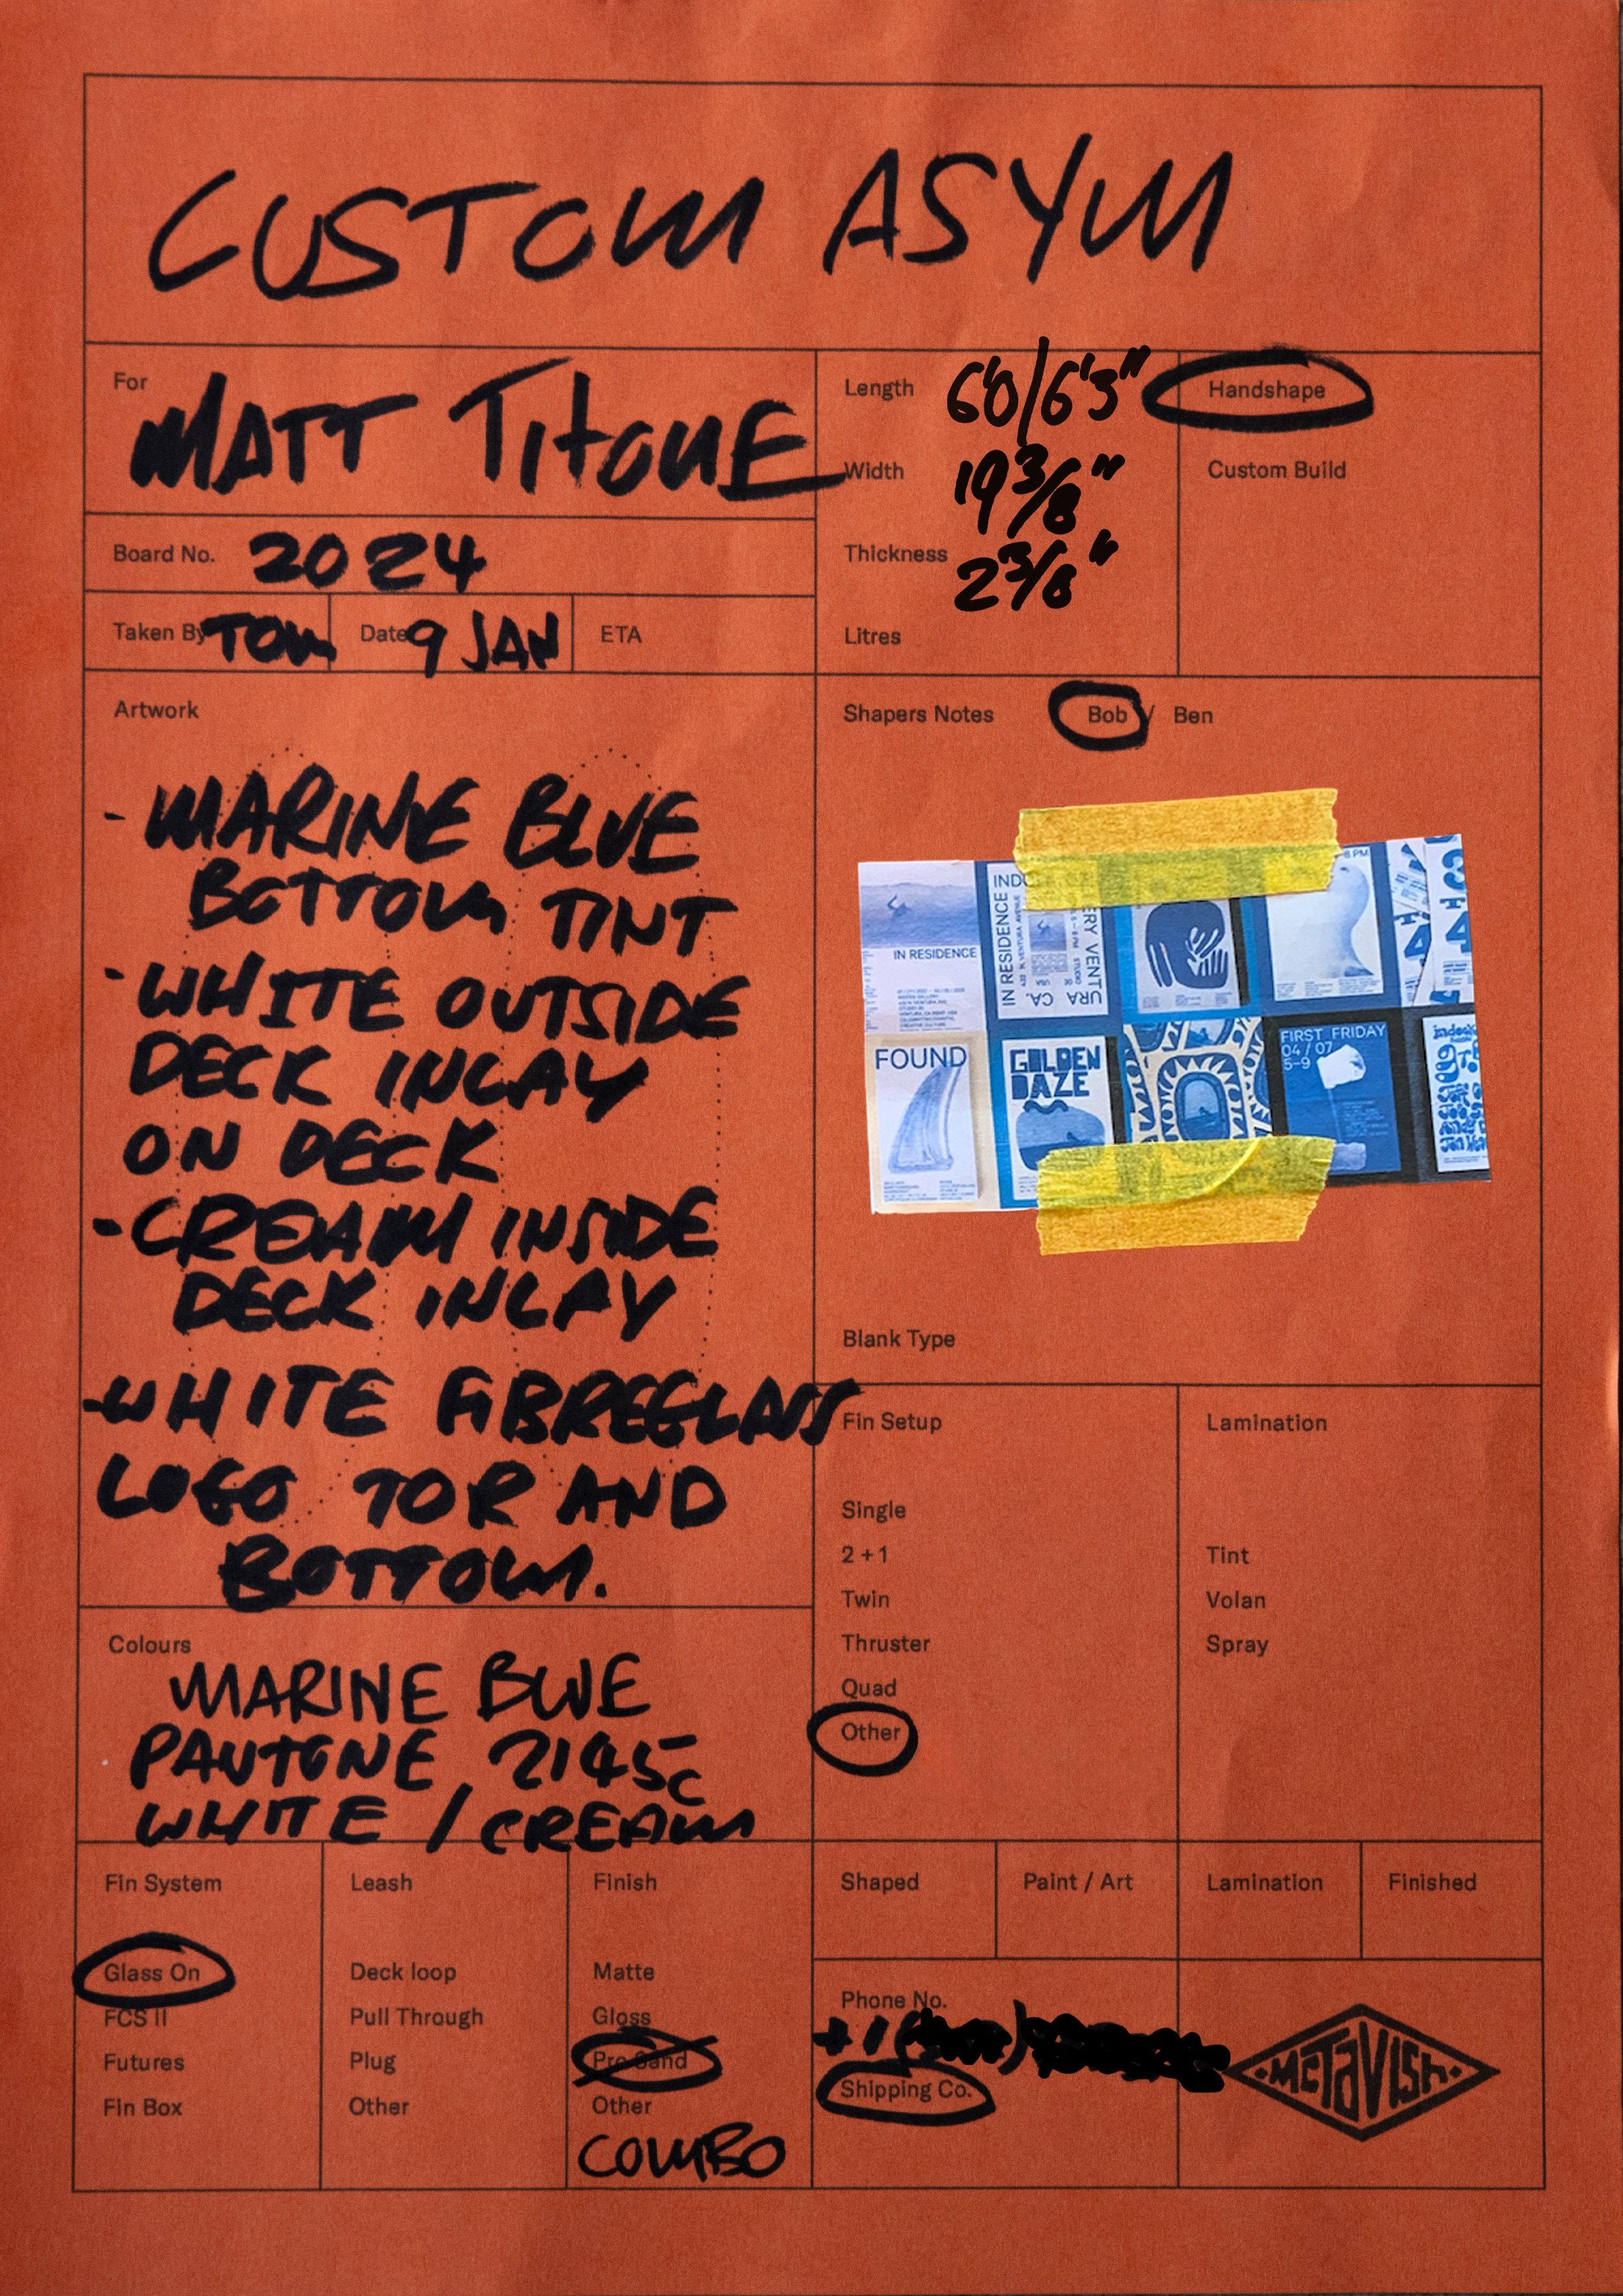 CUSTOM ASYM
For
MATT TITONE
Length 6'0/6'3"
Width 19 3/8"
Thickness 2 3/8"
Litres
Handshape
Custom Build
Board No. 2024
Taken By TOM
Date 9 JAN
ETA
Artwork
- MARINE BLUE
BOTTOM TINT
- WHITE OUTSIDE
DECK INLAY
ON DECK
- CREAM INSIDE
DECK INLAY
- WHITE FIBREGLASS
LOGO TOP AND
BOTTOM.
Shapers Notes Bob / Ben
IN RESIDENCE
IN RESIDENCE
8 PM
FOUND
GOLDEN
DAZE
FIRST FRIDAY
04 / 07
5-9
Blank Type
Colours
MARINE BLUE
PANTONE 2145C
WHITE / CREAM
Fin Setup
Single
2 + 1
Twin
Thruster
Quad
Other
Lamination
Tint
Volan
Spray
Fin System
Glass On
FCS II
Futures
Fin Box
Leash
Deck loop
Pull Through
Plug
Other
Finish
Matte
Gloss
Pro Sand
Other
COMBO
Shaped
Paint / Art
Lamination
Finished
Phone No.
+1
Shipping Co.
McTAVISH